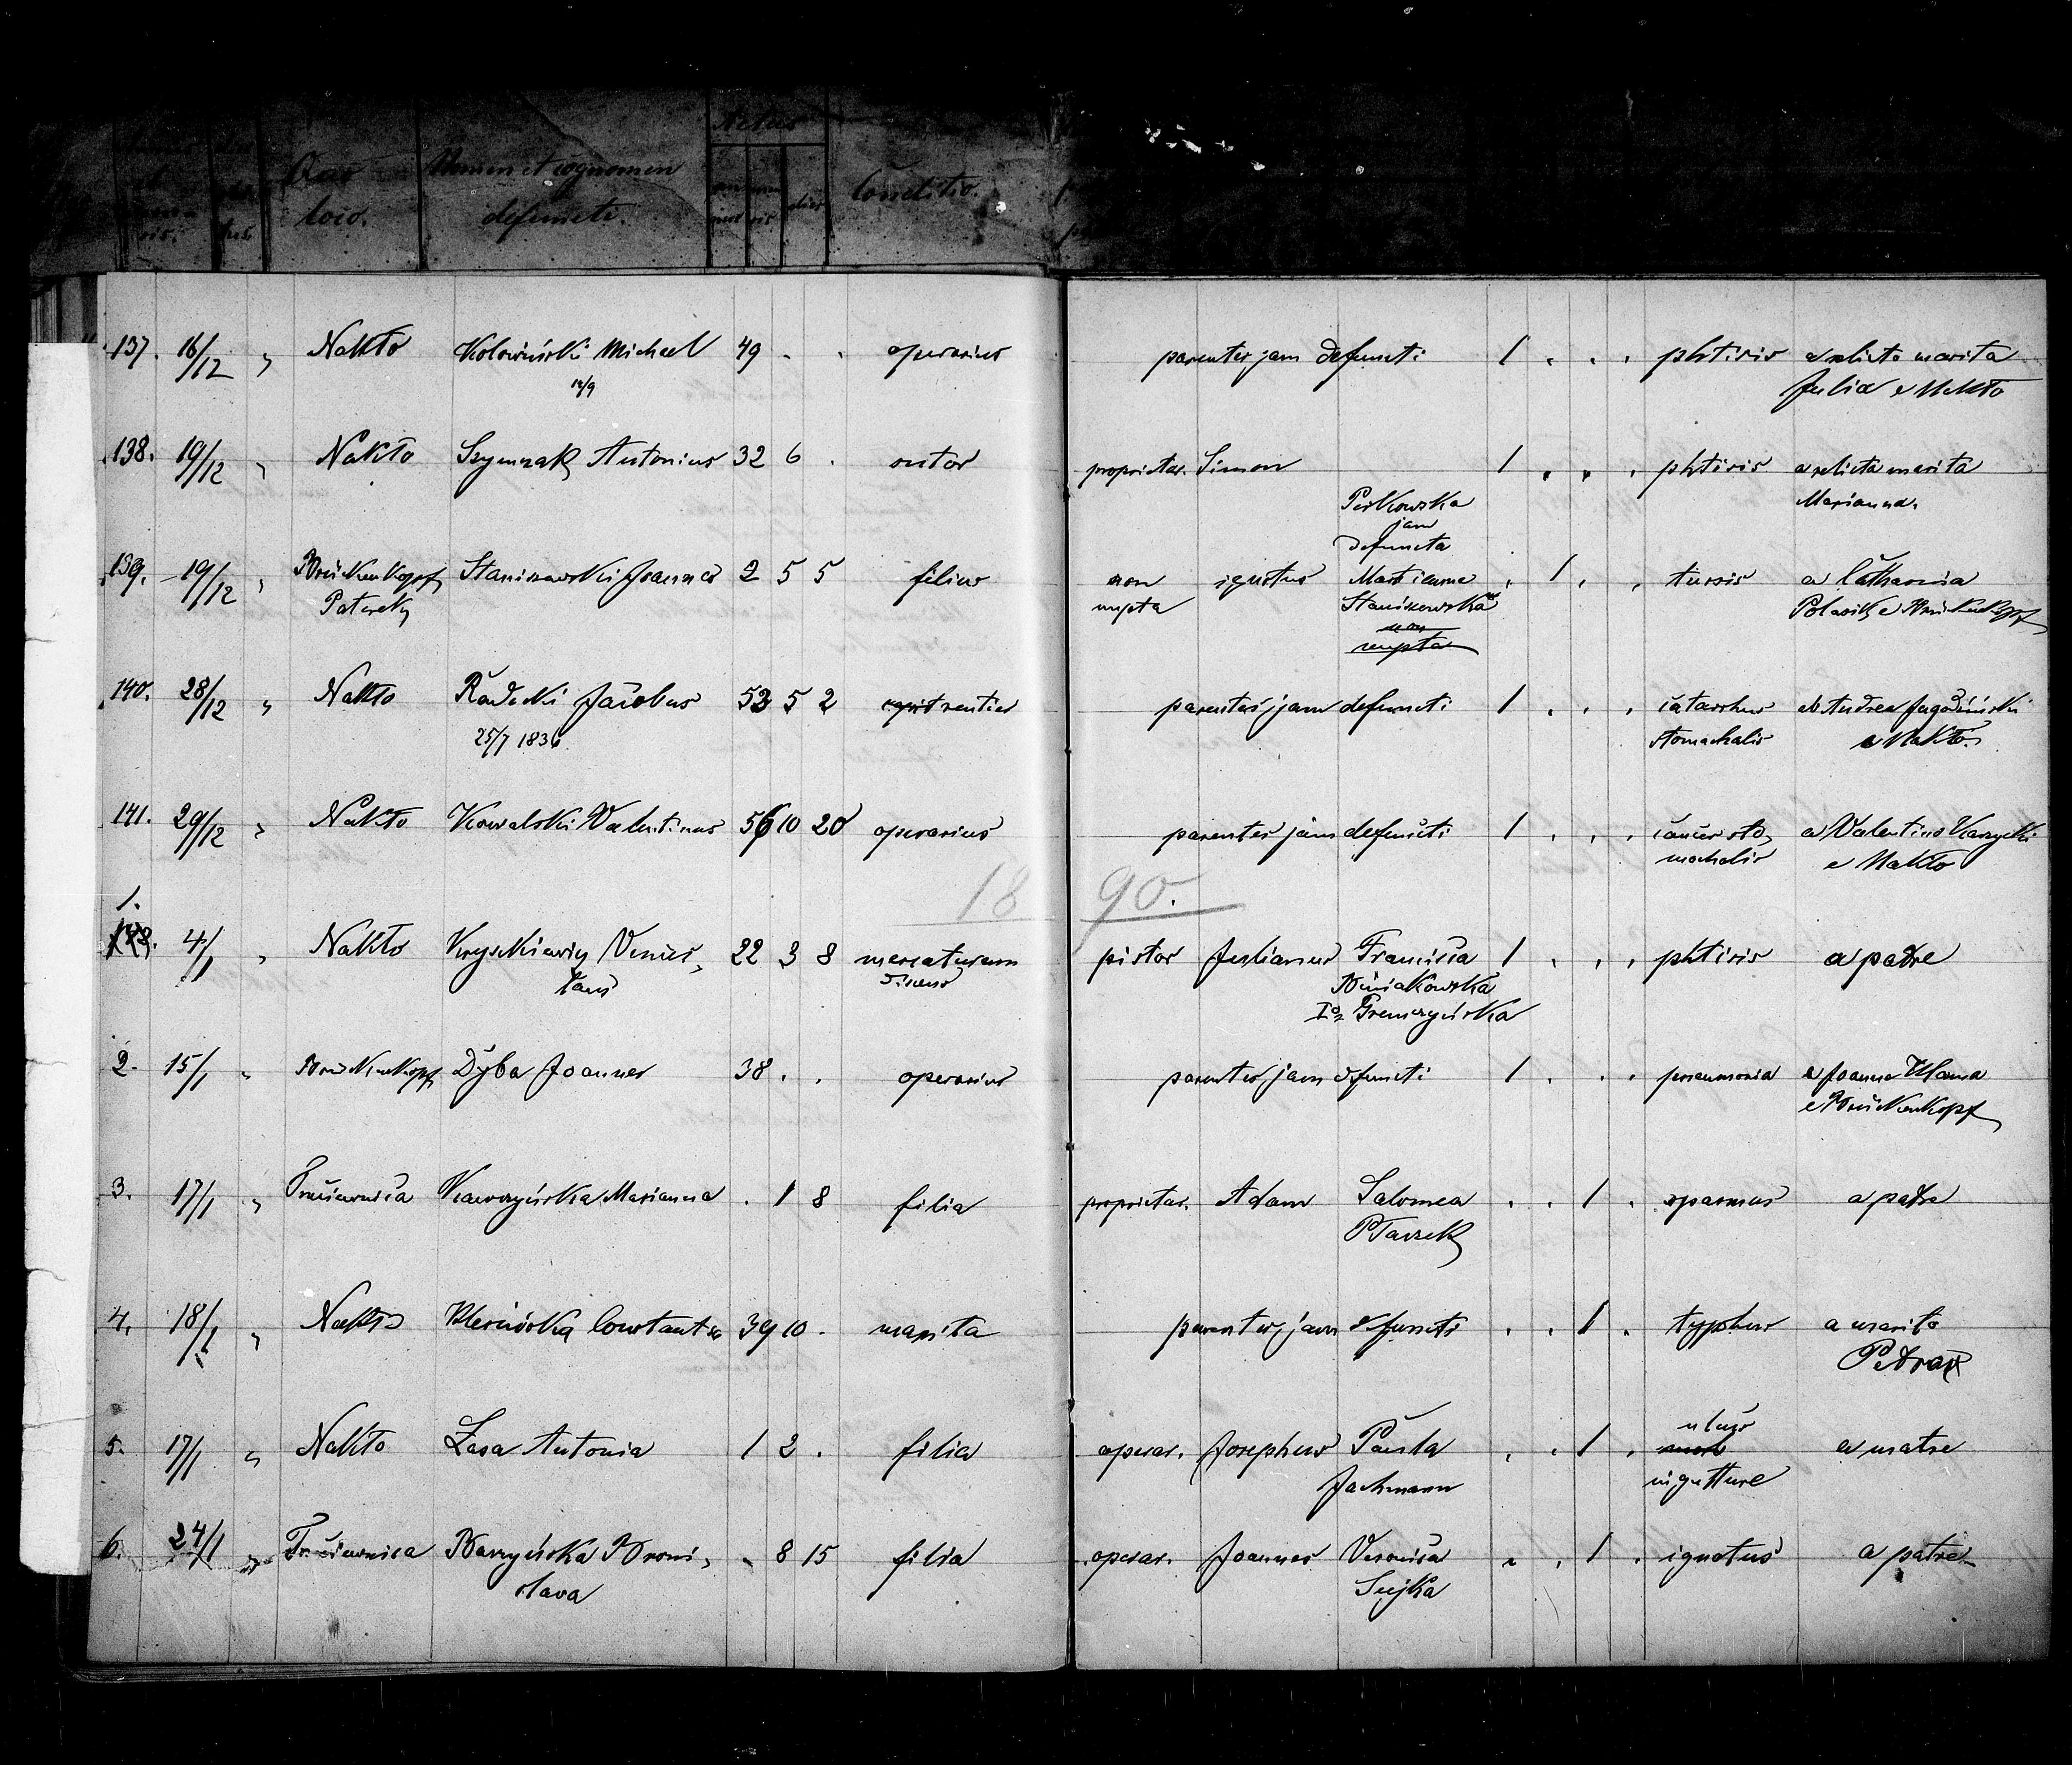 Aetas
Quo loco.
Nomen et cognomen defuncti.
Conditio.
137. 16/12 " Nakło Kolowiński Michael 49 . . operarius parentes jam defuncti 1 . . . phtisis a relicta marita
12/9 Julia e Nakło
138. 19/12 " Nakło Szymzak Antonius 32 6 . sutor proprietar. Simon 1 . . . phtisis a relicta marita
Perkowska Marianna.
jam
defuncta
139. 19/12 " Brückenkopf Staniszewski Joannes 2 5 5 filius non ignotus Marianna . 1 . . tussis a Catharina
Paterek nupta Staniszewska Polasik e Brückenkopf
non
nupta
140. 28/12 " Nakło Radecki Jacobus 53 5 2 rentier parentes jam defuncti 1 . . . catarrhus ab Andrea Jagodziński
25/7 1836. stomachalis e Nakło.
141. 29/12 " Nakło Kowalski Valentinus 56 10 20 operarius parentes jam defuncti 1 . . . cancer sto-
machalis a Valentino
e Nakło
1890.
1.
142. 4/1 " Nakło Vences- 22 3 8 mercaturam pistor Julianus Francisca 1 . . . phtisis a patre
laus discens
Iº Gremczyńska
2. 15/1 " Brückenkopf Dyba Joannes 38 . . operarius parentes jam defuncti 1 . . . pneumonia a Joanne
e Brückenkopf
3. 17/1 " Trzeciewnica Kawczyńska Marianna . 1 8 filia proprietar. Adam Salomea . . 1 . spasmus a patre
Ptaszek
4. 18/1 " Nakło Constantia 39 10 . marita parentes jam defuncti . . 1 . typhus a marito
Petro
5. 17/1 " Nakło Lasa Antonia 1 2 . filia operar. Josephus Paula . . 1 . ulcus a matre
Jachmann in gutture
6. 24/1 " Trzeciewnica Barzyńska Broni- . 8 15 filia operar. Joannes Veronica . . 1 . ignotus a patre
slava Sujka